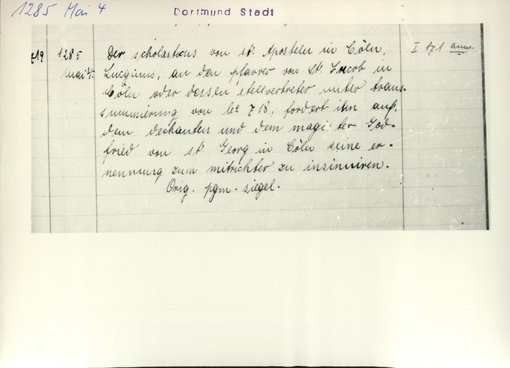 1285 Mai 4
Dortmund Stadt
719 1285 Der scholasticus von st. Aposteln in Cöln, I 171 anm.
mai 4. an den pfarrer von St. Jacob in
Cöln oder dessen stellvertreter unter trans-
summierung von nr 718, fordert ihn auf,
dem dechanten und dem magister God-
fried von st Georg in Cöln seine er-
nennung zum mitrichter zu insinuiren.
Orig. pgm. siegel.